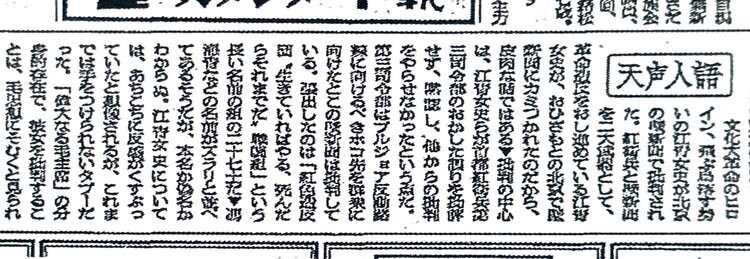 天声人語
文化大革命のヒロ
イン、飛ぶ鳥落す勢
いの江青女史が北京
の壁新聞で批判され
た。紅衛兵と壁新聞
を二大武器として、
革命造反をおし進めている江青
女史が、おひざもとの北京で壁
新聞にカミつかれたのだから、
皮肉な話ではある▼批判の中心
は、江青女史らが首都紅衛兵第
三司令部のおかした誤りを批評
せず、黙認し、他からの批判
をやらせなかったという点だ。
第三司令部はブルジョア反動路
線に向けるべきホコ先を群衆に
向けたとこの壁新聞は批判して
いる。張出したのは「紅色造反
団『生きていればやる、死んだ
らそれまでだ』戦闘組」という
長い名前の組の二十七士だ▼馮
などの名前がズラリと並べ
てあるそうだが、本名か偽名か
わからぬ。江青女史について
は、あちこちに反感がくすぶっ
ていたと想像されるが、これま
では手をつけられないタブーだ
った。「偉大なる毛主席」の分
身的存在で、彼女を批判するこ
とは、毛思想にそむくと見られ